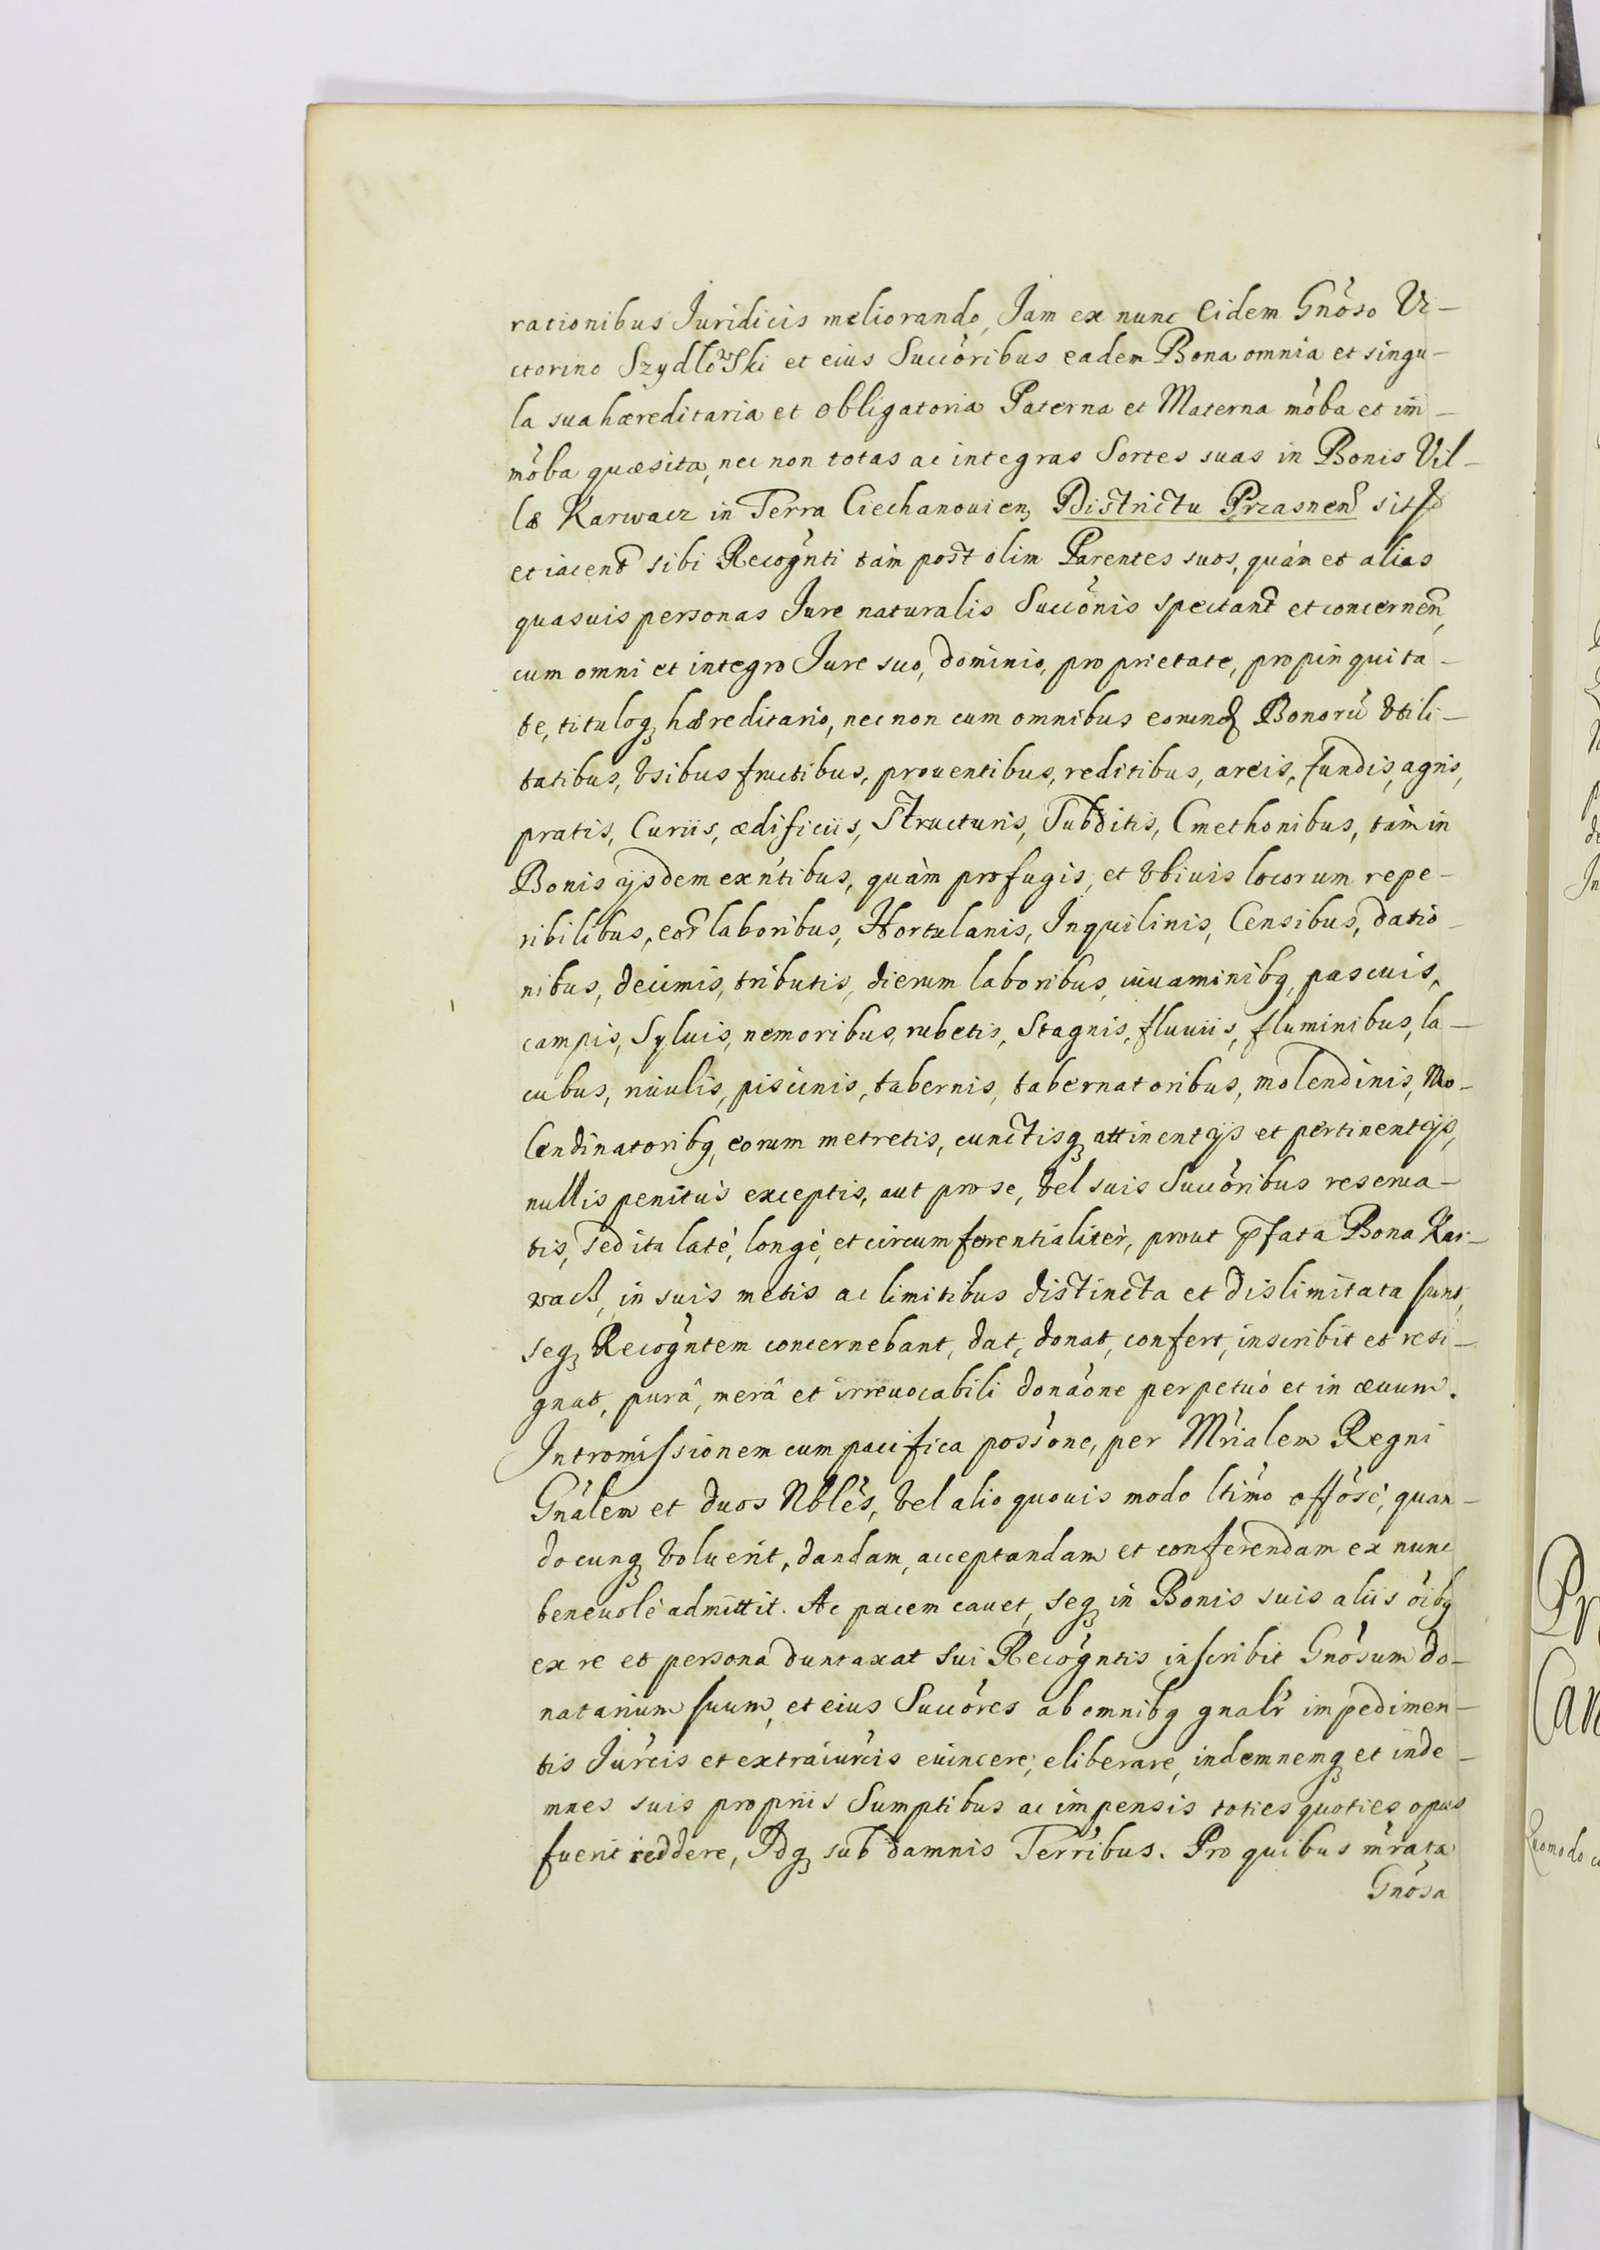 rationibus Juridicis meliorando, Jam ex nunc Eidem Gnõso Vi-
ctorino Szydłowski et eius Succõribus eadem Bona omnia et singu-
la sua hæreditaria et obligatoria Paterna et Materna mõba et im-
mõba quæsita, nec non totas ac integras Sortes suas in Bonis Vil-
læ Karwacz in Terra Ciechanouien, Districtu Przasnen sit
et iacend sibi Recognti tàm post olim Parentes suos, quàm et alias
quasuis personas Jure naturalis Succõnis spectant et concernen,
cum omni et integro Jure suo, dominio, proprietate, propinquita-
te, tituloq, hæreditario, nec non cum omnibus eorund Bonorũ vtili-
tatibus, vsibus fructibus, prouentibus, reditibus, areis, fundis, agris,
pratis, Curiis, ædificiis, Structuris, Subditis, Cmethonibus, tàm in
Bonis ijsdem exñtibus, quàm profugis, et vbiuis locorum repe-
ribilibus, eor laboribus, Hortulanis, Inquilinis, Censibus, datio-
nibus, decimis, tributis, dierum laboribus, iuuaminibq, pascuis,
campis, Syluis, nemoribus, rubetis, Stagnis, fluuiis, fluminibus, la-
cubus, riuulis, piscinis, tabernis, tabernatoribus, molendinis, Mo-
lendinatoribq, eorum metretis, cunctisq, attinentijs et pertinentijs,
nullis penitùs exceptis, aut pro se, vel suis Succõribus reserua-
tis, sed ita latè, longè, et circumferentialitèr, prout pfata Bona Kar-
wacz, in suis metis ac limitibus distincta et dislimitata sunt,
seq, Recogntem concernebant, dat, donat, confert, inscribit et resi-
gnat, purâ, merâ et irreuocabili donaõne perpetuò et in æuum.
Intromissionem cum pacifica possõne, per Mrialem Regni
Gnãlem et duos Nblẽs, vel alio quouis modo ltimo offõsè, quan-
docunq, voluerit, dandam, acceptandam et conferendam ex nunc
beneuolè admittit. Ac pacem cauet, seq, in Bonis suis aliis oibq
ex re et persona duntaxat sui Recogntis inscribit Gnõsum do-
natarium suum, et eius Succõres ab omnibq gnalr impedimen-
tis Jurcis et extraiurcis euincere, eliberare, indemnemq, et inde-
mnes suis propriis Sumptibus ac impensis toties quoties opus
fuerit reddere, Idq, sub damnis Terribus. Pro quibus mrata
Gnõsa